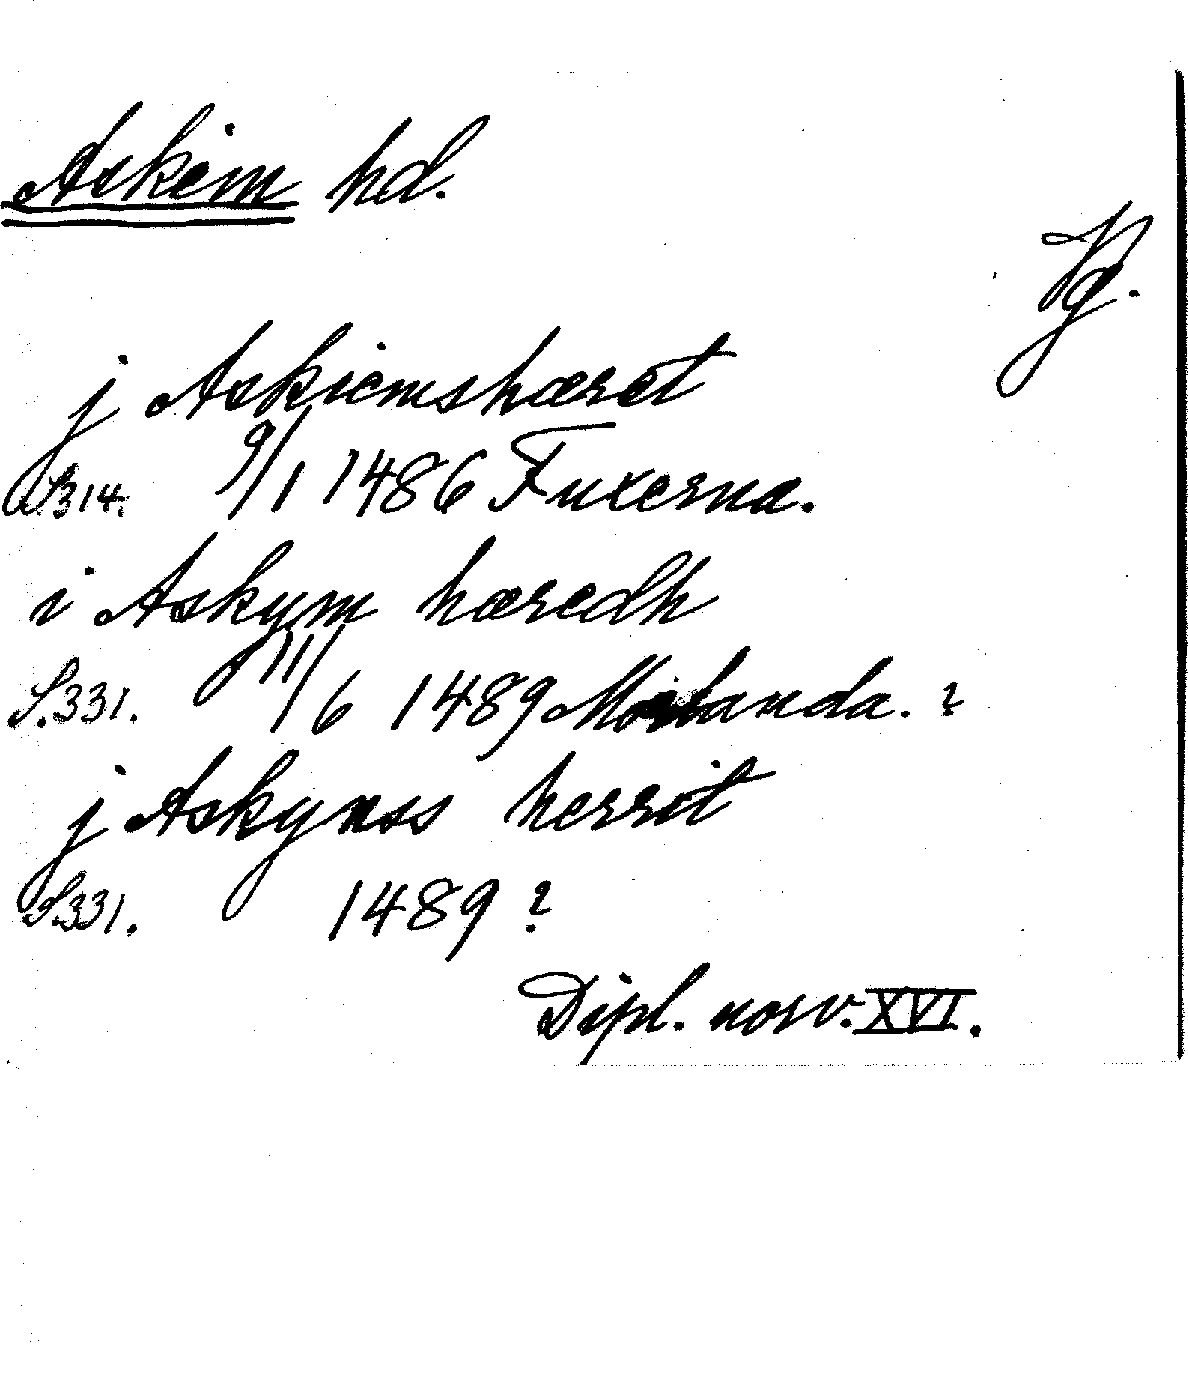 Askim hd.
Vg.
j Askiemshæret
S.314. 9/1 1486 Fuxerna.
i Askym hæredh
S.331. 11/6 1489 Morlanda. ?
j Askynss herrit
S.331. 1489 ?
Dipl. norv. XVI.